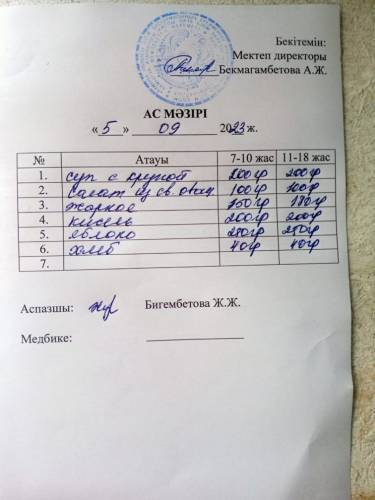 Бекітемін:
Мектеп директоры
Бекмагамбетова А.Ж.
АС МӘЗІРІ
« 5 » 09 2023 ж.
№ Атауы 7-10 жас 11-18 жас
1. суп с крупой 200гр 200гр
2. Салат из св. овощ 100гр 100гр
3. жаркое 150гр 180гр
4. кисель 200гр 200гр
5. яблоко 250гр 250гр
6. хлеб 40гр 40гр
7.
Аспазшы: Бигембетова Ж.Ж.
Медбике: